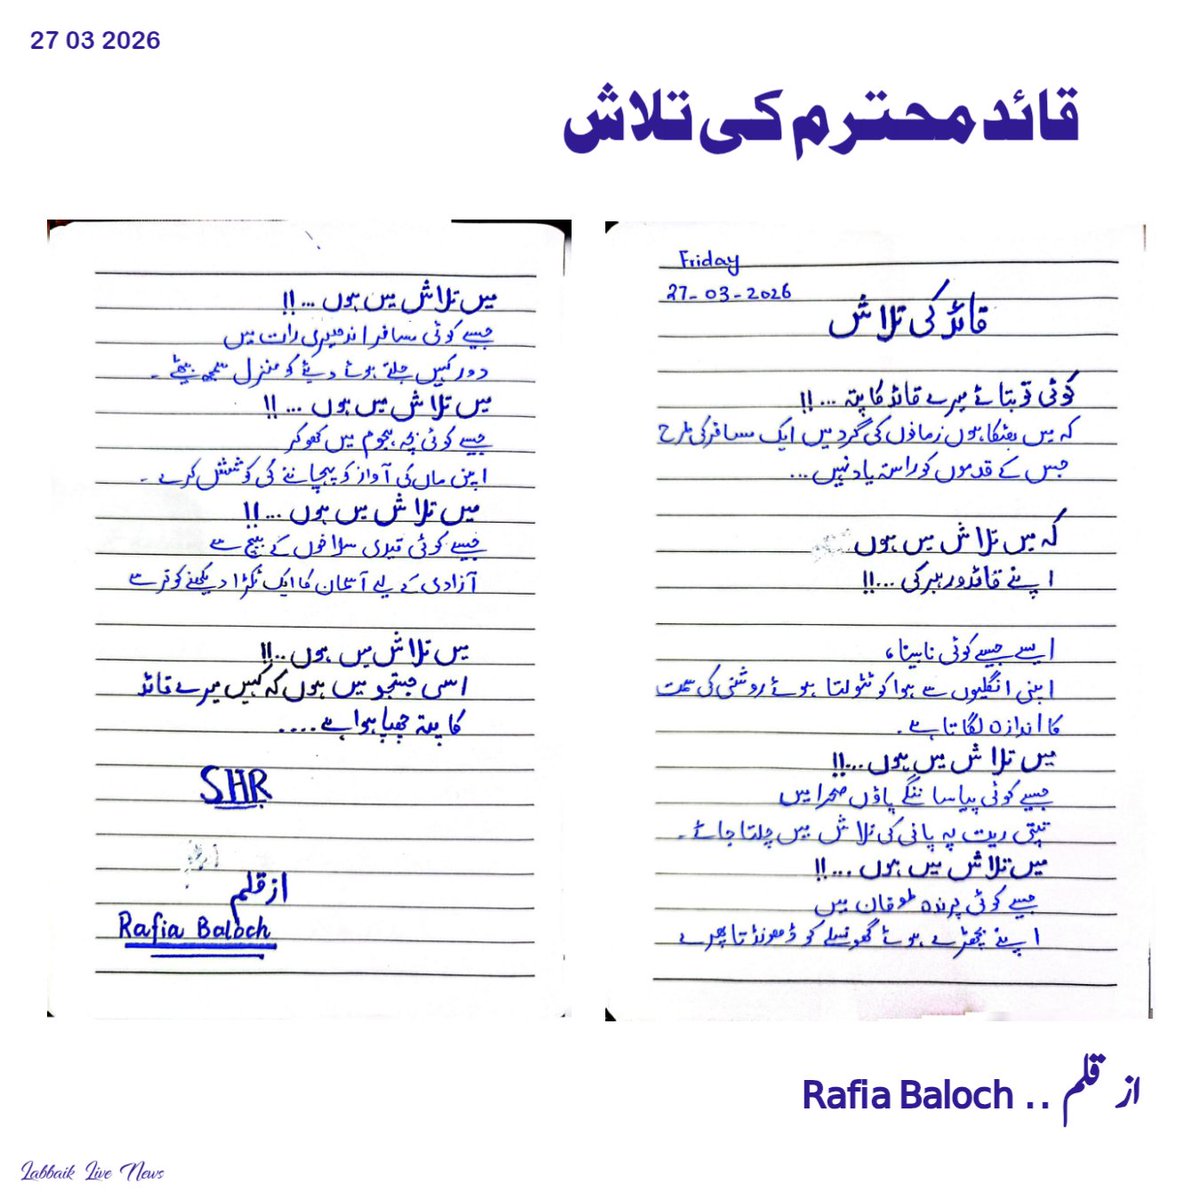 27 03 2026
قائد محترم کی تلاش
Friday
27-03-2026
قائد کی تلاش
کوئی تو بتائے میرے قائد کا پتہ ...!!
کہ میں بھٹکا ہوں زمانوں کی گرد میں ایک مسافر کی طرح
جس کے قدموں کو راستہ یاد نہیں...
کہ میں تلاش میں ہوں
اپنے قائد و رہبر کی ...!!
ایسے جیسے کوئی نابینا،
اپنی انگلیوں سے ہوا کو ٹٹولتا ہوئے روشنی کی سمت
کا اندازہ لگاتا ہے۔
میں تلاش میں ہوں...!!
جیسے کوئی پیاسا ننگے پاؤں صحرا میں
تپتی ریت پہ پانی کی تلاش میں چلتا جائے۔
میں تلاش میں ہوں ...!!
جیسے کوئی پرندہ طوفان میں
اپنے بچھڑے ہوئے گھونسلے کو ڈھونڈتا پھرے
میں تلاش میں ہوں ...!!
جیسے کوئی مسافر اندھیری رات میں
دور کہیں جلتے ہوئے دیئے کو منزل سمجھ بیٹھے۔
میں تلاش میں ہوں ...!!
جیسے کوئی بچہ ہجوم میں کھو کر
اپنی ماں کی آواز کو پہچاننے کی کوشش کرے۔
میں تلاش میں ہوں ...!!
جیسے کوئی قیدی سلاخوں کے بیچ سے
آزادی کے لیے آسمان کا ایک ٹکڑا دیکھنے کو ترسے
میں تلاش میں ہوں ...!!
اسی جستجو میں ہوں کہ کہیں میرے قائد
کا پتہ چھپا ہوا ہے ....
SHR
از قلم
Rafia Baloch
از قلم .. Rafia Baloch
Labbaik Live News